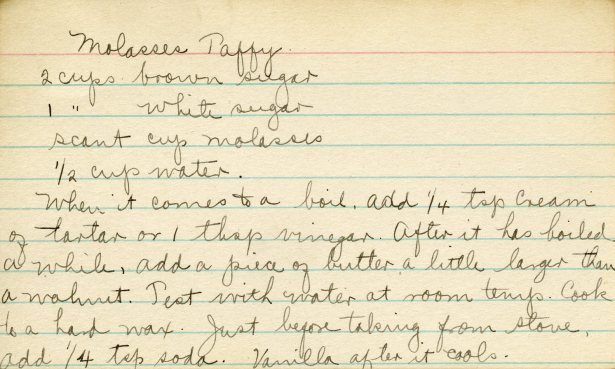 Molasses Taffy.
2 cups brown sugar
1 " white sugar
scant cup molasses
1/2 cup water.
When it comes to a boil, add 1/4 tsp cream
of tartar or 1 tbsp vinegar. After it has boiled
a while, add a piece of butter a little larger than
a walnut. Test with water at room temp. Cook
to a hard wax. Just before taking from stove,
add 1/4 tsp soda. Vanilla after it cools.